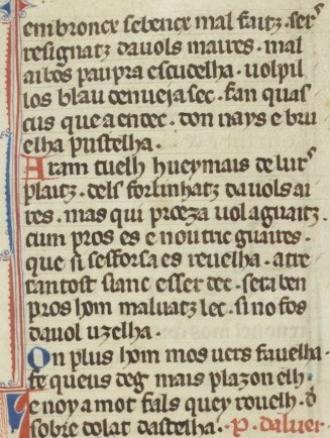 embronce sebence mal faitz. sers
resignatz dauols maires. mal
aibos paupra escudelha. uolpil
los blau denueja sec. fan quas
cus que a endec. don nays e bru
elha pustelha.
Aram tuelh hueymais de lurs
plaitz. dels forlinhatz dauols ai
res. mas qui proeza uol aguaitz.
cum pros es e noiritz guaires.
que si sesforsa es reuelha. atre
tan tost si anc esser dec. sera ben
pros hom maluatz lec. si no fos
dauol uzelha.
On plus hom mos uers fauelha.
fe queus deg mais plazon elh.
e no y a mot fals quey rouelh. d
sobre dolat dastelha. P. daluer.